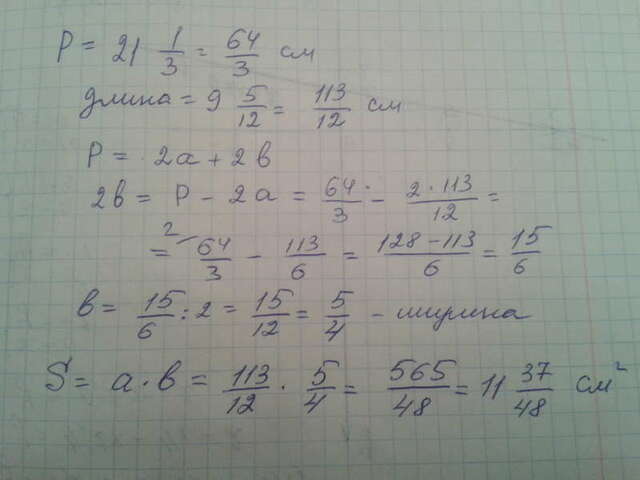 P = 21 1/3 = 64/3 см
длина = 9 5/12 = 113/12 см
P = 2a + 2b
2b = P - 2a = 64/3 - 2·113/12 =
= 2 64/3 - 113/6 = 128-113/6 = 15/6
b = 15/6 : 2 = 15/12 = 5/4 - ширина
S = a·b = 113/12 · 5/4 = 565/48 = 11 37/48 см²